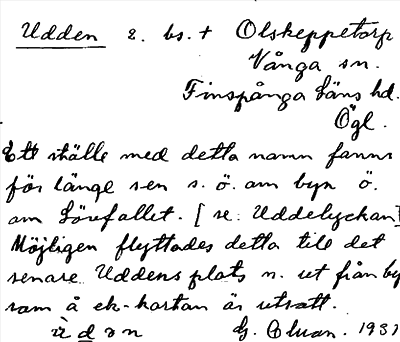 Udden 2. bs. t Olskeppetorp
Vånga sn.
Finspånga läns hd.
Ögl.
Ett ställe med detta namn fanns
för länge sen s. ö. om byn ö.
om Lövefallet. [se: Uddelyckan]
Möjligen flyttades detta till det
senare Uddens plats n. ut från by
som å ek-kartan är utsatt.
ùdən G. Oluan. 1931